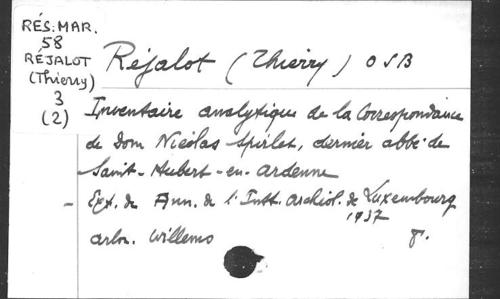 RÉS. MAR.
58
RÉJALOT
(Thierry)
3
(2)
Réjalot (Thierry) OSB
Inventaire analytique de la Correspondance
de Dom Nicolas Spirlet, dernier abbé de
Saint-Hubert-en-Ardenne
- Ext. de Ann. de l'Inst. archéol. de Luxembourg
1937
arlon. Willems
8.